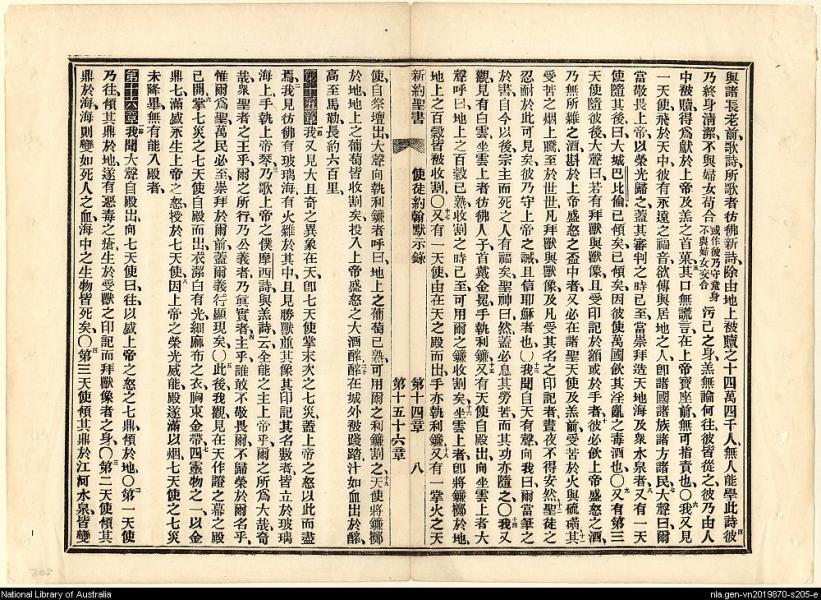 與諸長老前歌詩所歌者彷彿新詩除由地上被贖之十四萬四千人無人能學此詩彼
乃終身清潔不與婦女苟合或作彼乃守童身不與婦女交合污己之身羔無論何往彼皆從之彼乃由人
中被贖得爲獻於上帝及羔之首菓其口無謊言在上帝寶座前無可指責也〇我又見
一天使飛於天中彼有永遠之福音欲傳與居地之人卽諸國諸族諸方諸民大聲曰爾
當敬畏上帝以榮光歸之蓋其審判之時已至當崇拜造天地海及衆水泉者又有一天
使隨其後曰大城巴比倫已傾矣已傾矣因彼使萬國飲其淫亂之毒酒也〇又有第三
天使隨彼後大聲曰若有拜獸與獸像且受印記於額或於手者彼必飲上帝盛怒之酒
乃無所雜之酒斟於上帝盛怒之盃中者又必在諸聖天使及羔前受苦於火與硫磺其
受苦之烟上騰至於世世凡拜獸與獸像及凡受其名之印記者晝夜不得安然聖徒之
忍耐於此可見矣彼乃守上帝之誡且信耶穌者也〇我聞自天有聲向我曰爾當筆之
於書自今以後宗主而死之人有福矣聖神曰然蓋必息其勞苦而其功亦隨之〇我又
觀見有白雲坐雲上者彷彿人子首戴金冕手執利鐮又有天使自殿出向坐雲上者大
聲呼曰地上之百穀已熟收割之時已至可用爾之鐮收割矣坐雲上者卽將鐮擲於地
地上之百穀皆被收割〇又有一天使由在天之殿而出手亦執利鐮又有一掌火之天
新約聖書 使徒約翰默示錄 第十四章 第十五十六章 八
使自祭壇出大聲向執利鐮者呼曰地上之葡萄已熟可用爾之利鐮割之天使將鐮擲
於地地上之葡萄皆收割矣投入上帝盛怒之大酒醡醡在城外被踐踏汁如血出於醡
高至馬勒長約六百里
第十五章我又見大且奇之異象在天卽七天使掌末次之七災蓋上帝之怒以此而盡
焉我見彷彿有玻璃海有火雜於其中且見勝獸前其像其印記其名數者皆立於玻璃
海上手執上帝琴乃歌上帝之僕摩西詩與羔詩云全能之主上帝乎爾之所爲大哉奇
哉衆聖者之王乎爾之所行乃公義者乃眞實者主乎誰敢不敬畏爾不歸榮於爾名乎
惟爾爲聖萬民必至崇拜於爾前蓋爾義行顯現矣〇此後我觀見在天作證之幕之殿
已開掌七災之七天使自殿而出衣潔白有光細麻布之衣胸束金帶四靈物之一以金
鼎七滿盛永生上帝之怒授於七天使因上帝之榮光威能殿遂滿以烟七天使之七災
未降畢無有能入殿者
第十六章我聞大聲自殿出向七天使曰往以盛上帝之怒之七鼎傾於地〇第一天使
乃往傾其鼎於地遂有惡毒之瘡生於受獸之印記而拜獸像者之身〇第二天使傾其
鼎於海海則變如死人之血海中之生物皆死矣〇第三天使傾其鼎於江河水泉皆變
National Library of Australia
nla.gen-vn2019870-s205-e